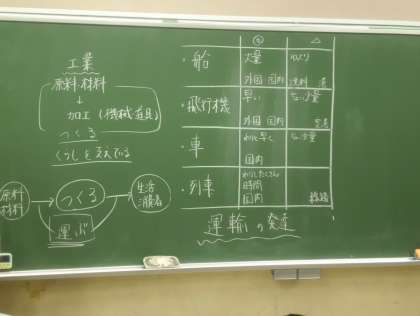 工業
原料・材料
↓
加工(機械道具)
つくる
くらしを支えている
原料
材料
つくる
生活
消費者
運ぶ
◎ △
・船 大量
外国 国内 燃料
・飛行機 早い 少量
外国 国内
・車 わりに早く 少量
国内
・列車 わりにたくさん
時間
国内 線路
運輸の発達